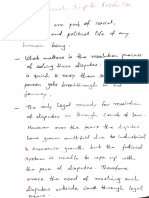 Dispute Resolution
are part of social,
and political life of any
human being.
- What matters is the resolution process
of solving these disputes.
is quick & easy then
person gets breakthrough in his
- The only legal remedy for resolution
of disputes is through Court of law.
However over the years the disputes
have grown multifold due to industrial
& economic growth, but the judicial
system is unable to cope up with
the pace of disputes. Therefore
arose the need of resolving such
disputes outside court through legal
means.